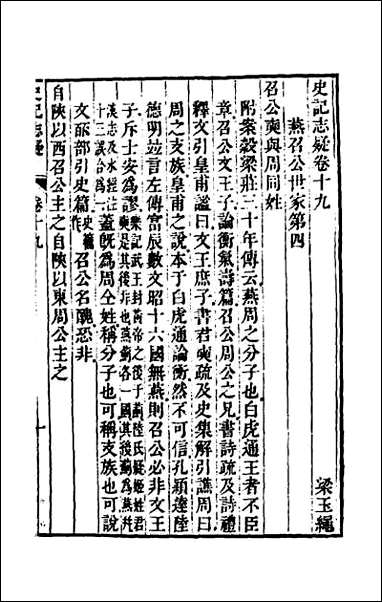 史記志疑卷十九
梁玉繩
燕召公世家第四
召公奭與周同姓
附案穀梁莊三十年傳云燕周之分子也白虎通王者不臣
章召公文王子論衡氣壽篇召公周公之兄書詩疏及詩禮
釋文引皇甫謐曰文王庶子書君奭疏及史集解引譙周曰
周之支族皇甫之說本于白虎通論衡然不可信孔穎達陸
德明竝言左傳富辰數文昭十六國無燕則召公必非文王
子斥士安為謬
蓋旣為周同姓稱分子也可稱支族也可說
文奭部引史篇召公名醜恐非
自陝以西召公主之自陝以東周公主之
史記志疑 卷十九 一